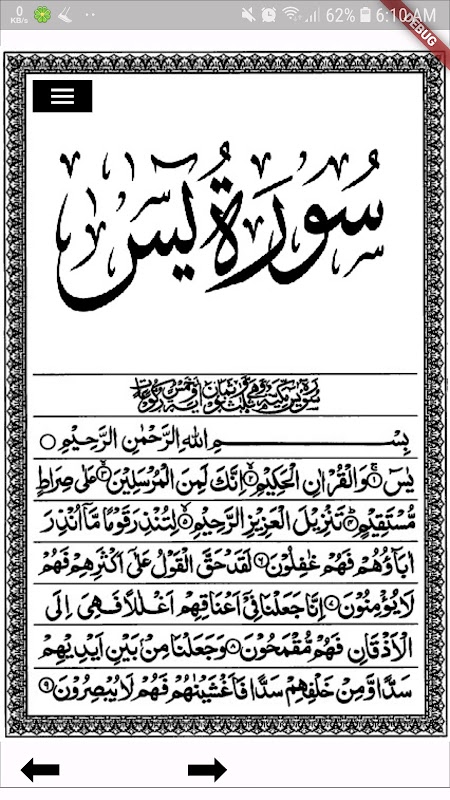 0
KB/s
62% 6:10 AM
DEBUG
سُورَةُ يٰسٓ
بِسْمِ اللهِ الرَّحْمٰنِ الرَّحِيْمِ
يٰسٓ ۚ۝۱ وَالْقُرْاٰنِ الْحَكِيْمِ ۙ۝۲ اِنَّكَ لَمِنَ الْمُرْسَلِيْنَ ۙ۝۳ عَلٰى صِرَاطٍ
مُّسْتَقِيْمٍ ؕ۝۴ تَنْزِيْلَ الْعَزِيْزِ الرَّحِيْمِ ۙ۝۵ لِتُنْذِرَ قَوْمًا مَّاۤ اُنْذِرَ
اٰبَآؤُهُمْ فَهُمْ غٰفِلُوْنَ ۝۶ لَقَدْ حَقَّ الْقَوْلُ عَلٰۤى اَكْثَرِهِمْ فَهُمْ
لَا يُؤْمِنُوْنَ ۝۷ اِنَّا جَعَلْنَا فِيْۤ اَعْنَاقِهِمْ اَغْلٰلًا فَهِيَ اِلَى
الْاَذْقَانِ فَهُمْ مُّقْمَحُوْنَ ۝۸ وَجَعَلْنَا مِنْۢ بَيْنِ اَيْدِيْهِمْ
سَدًّا وَّمِنْ خَلْفِهِمْ سَدًّا فَاَغْشَيْنٰهُمْ فَهُمْ لَا يُبْصِرُوْنَ ۝۹